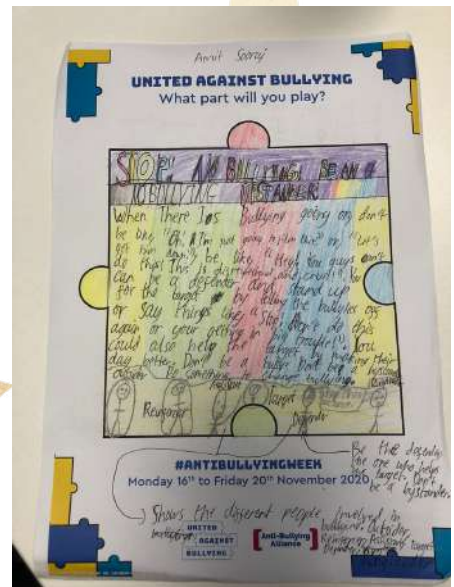 Amrit Sooraj
UNITED AGAINST BULLYING
What part will you play?
STOP! NO BULLYING! BE AN
NO BULLYING
When There Is Bullying going on don't
be like "Oh I'm not going in on this" or "Let's
be like, "Hey! You guys don't
do this! This is
can be a defender and stand up
for the target by telling the bullies
or say things like, "Stop! Don't do this
again or your getting in trouble!" You
could also help the target by making their
day better. Don't be a
bullying.
Reinforcer
Assistant
Target
Defender
Be the defender
the one who helps
the target. Don't
be a bystander.
#ANTIBULLYINGWEEK
Monday 16th to Friday 20th November 2020
Shows the different people involved in
bullying. Outsider,
Reinforcer, Assistant, Target,
UNITED
AGAINST
BULLYING
Anti-Bullying
Alliance